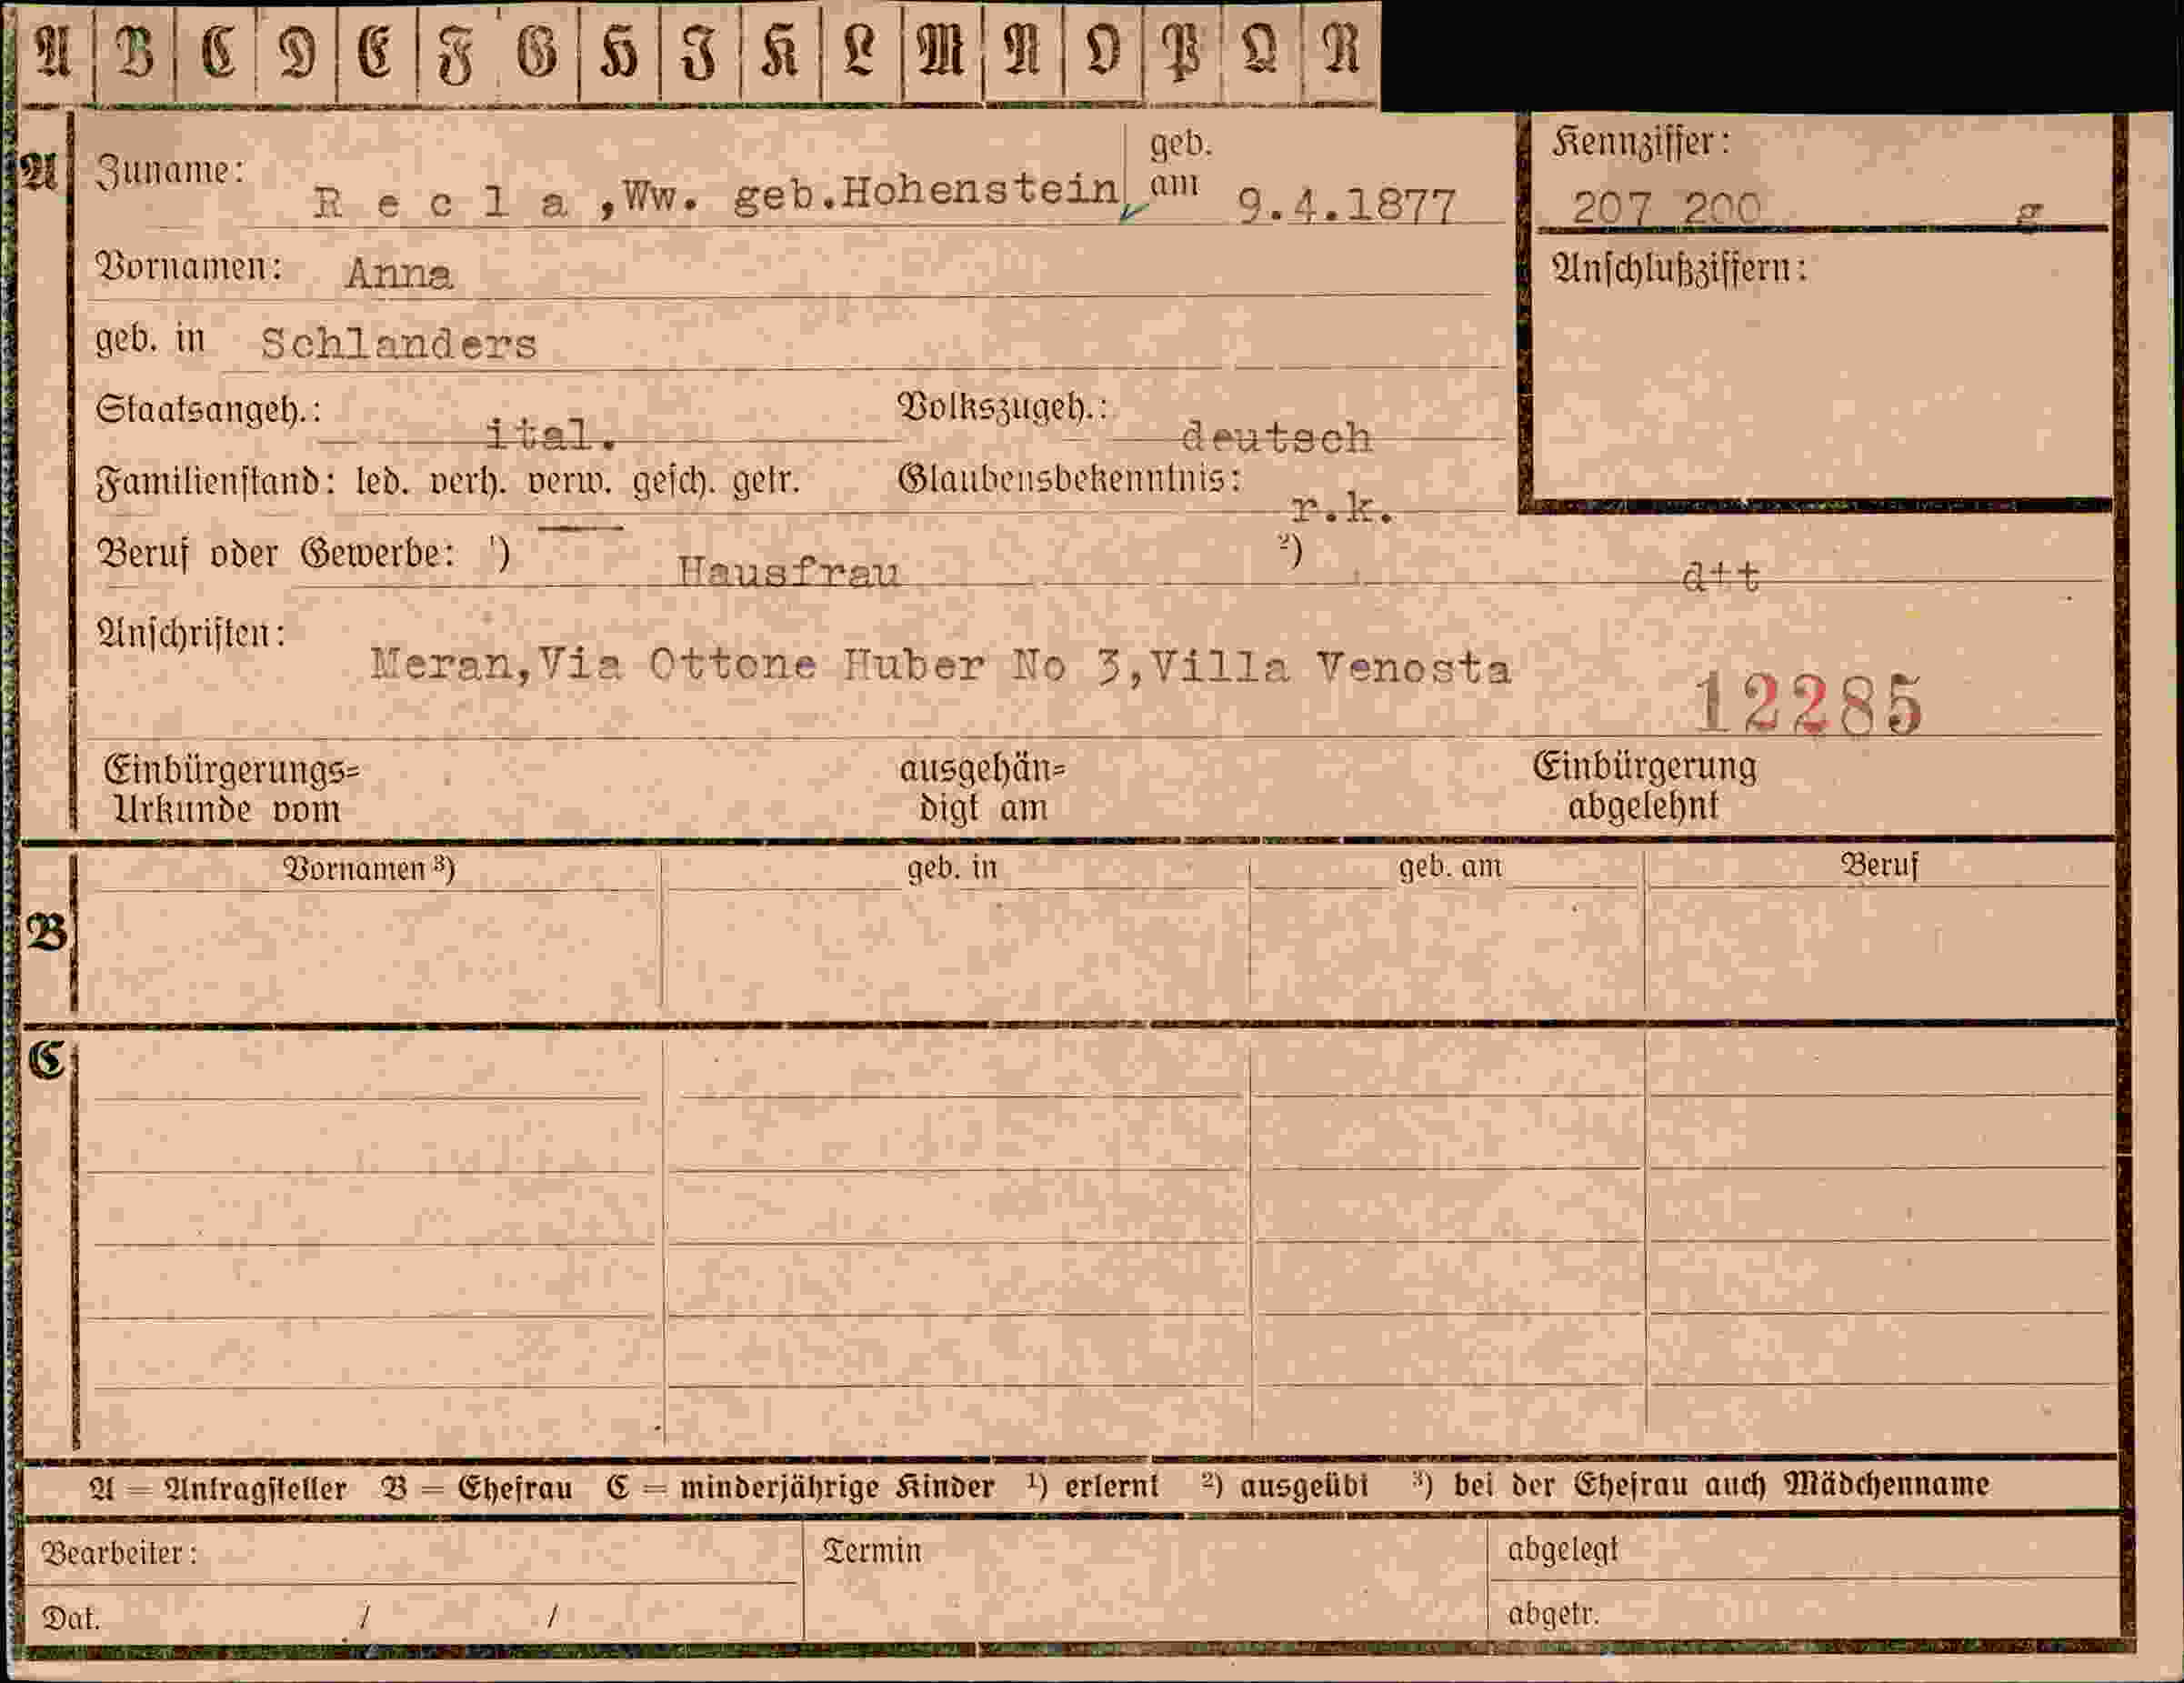 A B C D E F G H I K L M N O P Q R
A Zuname: Recla, Ww. geb. Hohenstein geb. am 9.4.1877
Kennziffer:
207 200 g
Vornamen: Anna
Anschlußziffern:
geb. in Schlanders
Staatsangeh.: ital. Volkszugeh.: deutsch
Familienstand: led. verh. verw. gesch. getr. Glaubensbekenntnis: r.k.
Beruf oder Gewerbe: ¹) Hausfrau ²) dtt
Anschriften: Meran, Via Ottone Huber No 3, Villa Venosta
12285
Einbürgerungs=
Urkunde vom
ausgehän=
digt am
Einbürgerung
abgelehnt
Vornamen ³) geb. in geb. am Beruf
B
C
A = Antragsteller B = Ehefrau C = minderjährige Kinder ¹) erlernt ²) ausgeübt ³) bei der Ehefrau auch Mädchenname
Bearbeiter: Termin abgelegt
Dat. / / abgetr.